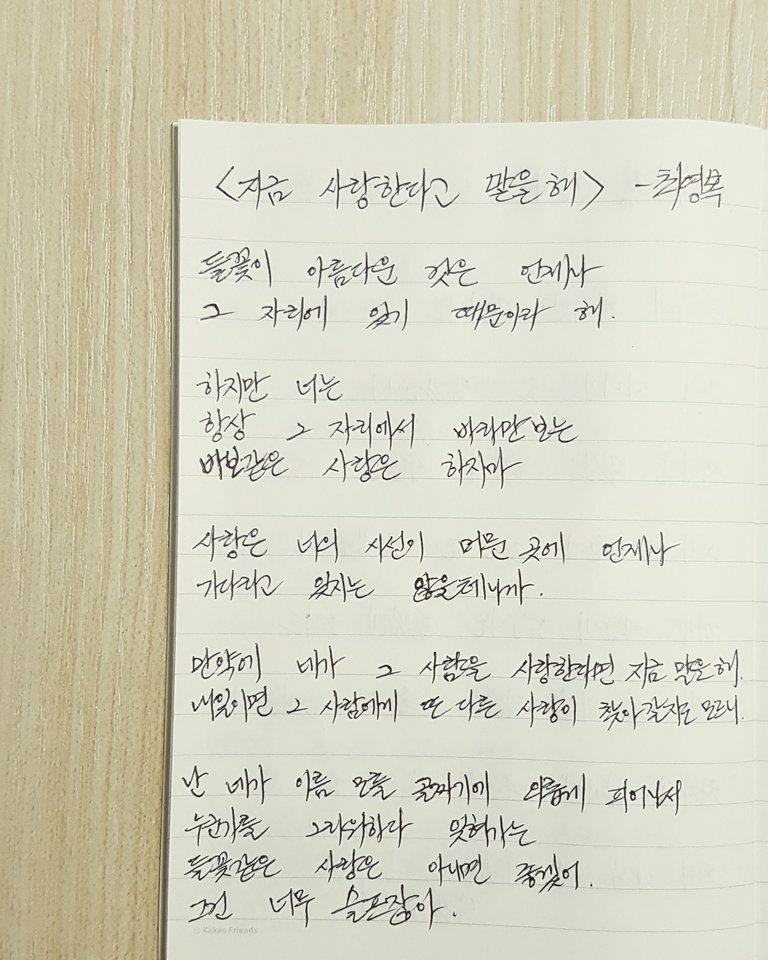 <지금 사랑한다고 말을 해> - 최영복
들꽃이 아름다운 것은 언제나
그 자리에 있기 때문이라 해.
하지만 너는
항상 그 자리에서 바라만 보는
바보같은 사랑은 하지마
사랑은 너의 시선이 머문 곳에 언제나
기다리고 있지는 않을테니까.
만약에 네가 그 사람을 사랑한다면 지금 말을 해.
내일이면 그 사람에게 또 다른 사랑이 찾아갈지도 모르니.
난 네가 이름 모를 골짜기에 외롭게 피어나서
누군가를 그리워하다 잊혀가는
들꽃같은 사랑은 아니면 좋겠어.
그건 너무 슬프잖아.
© Kakao Friends